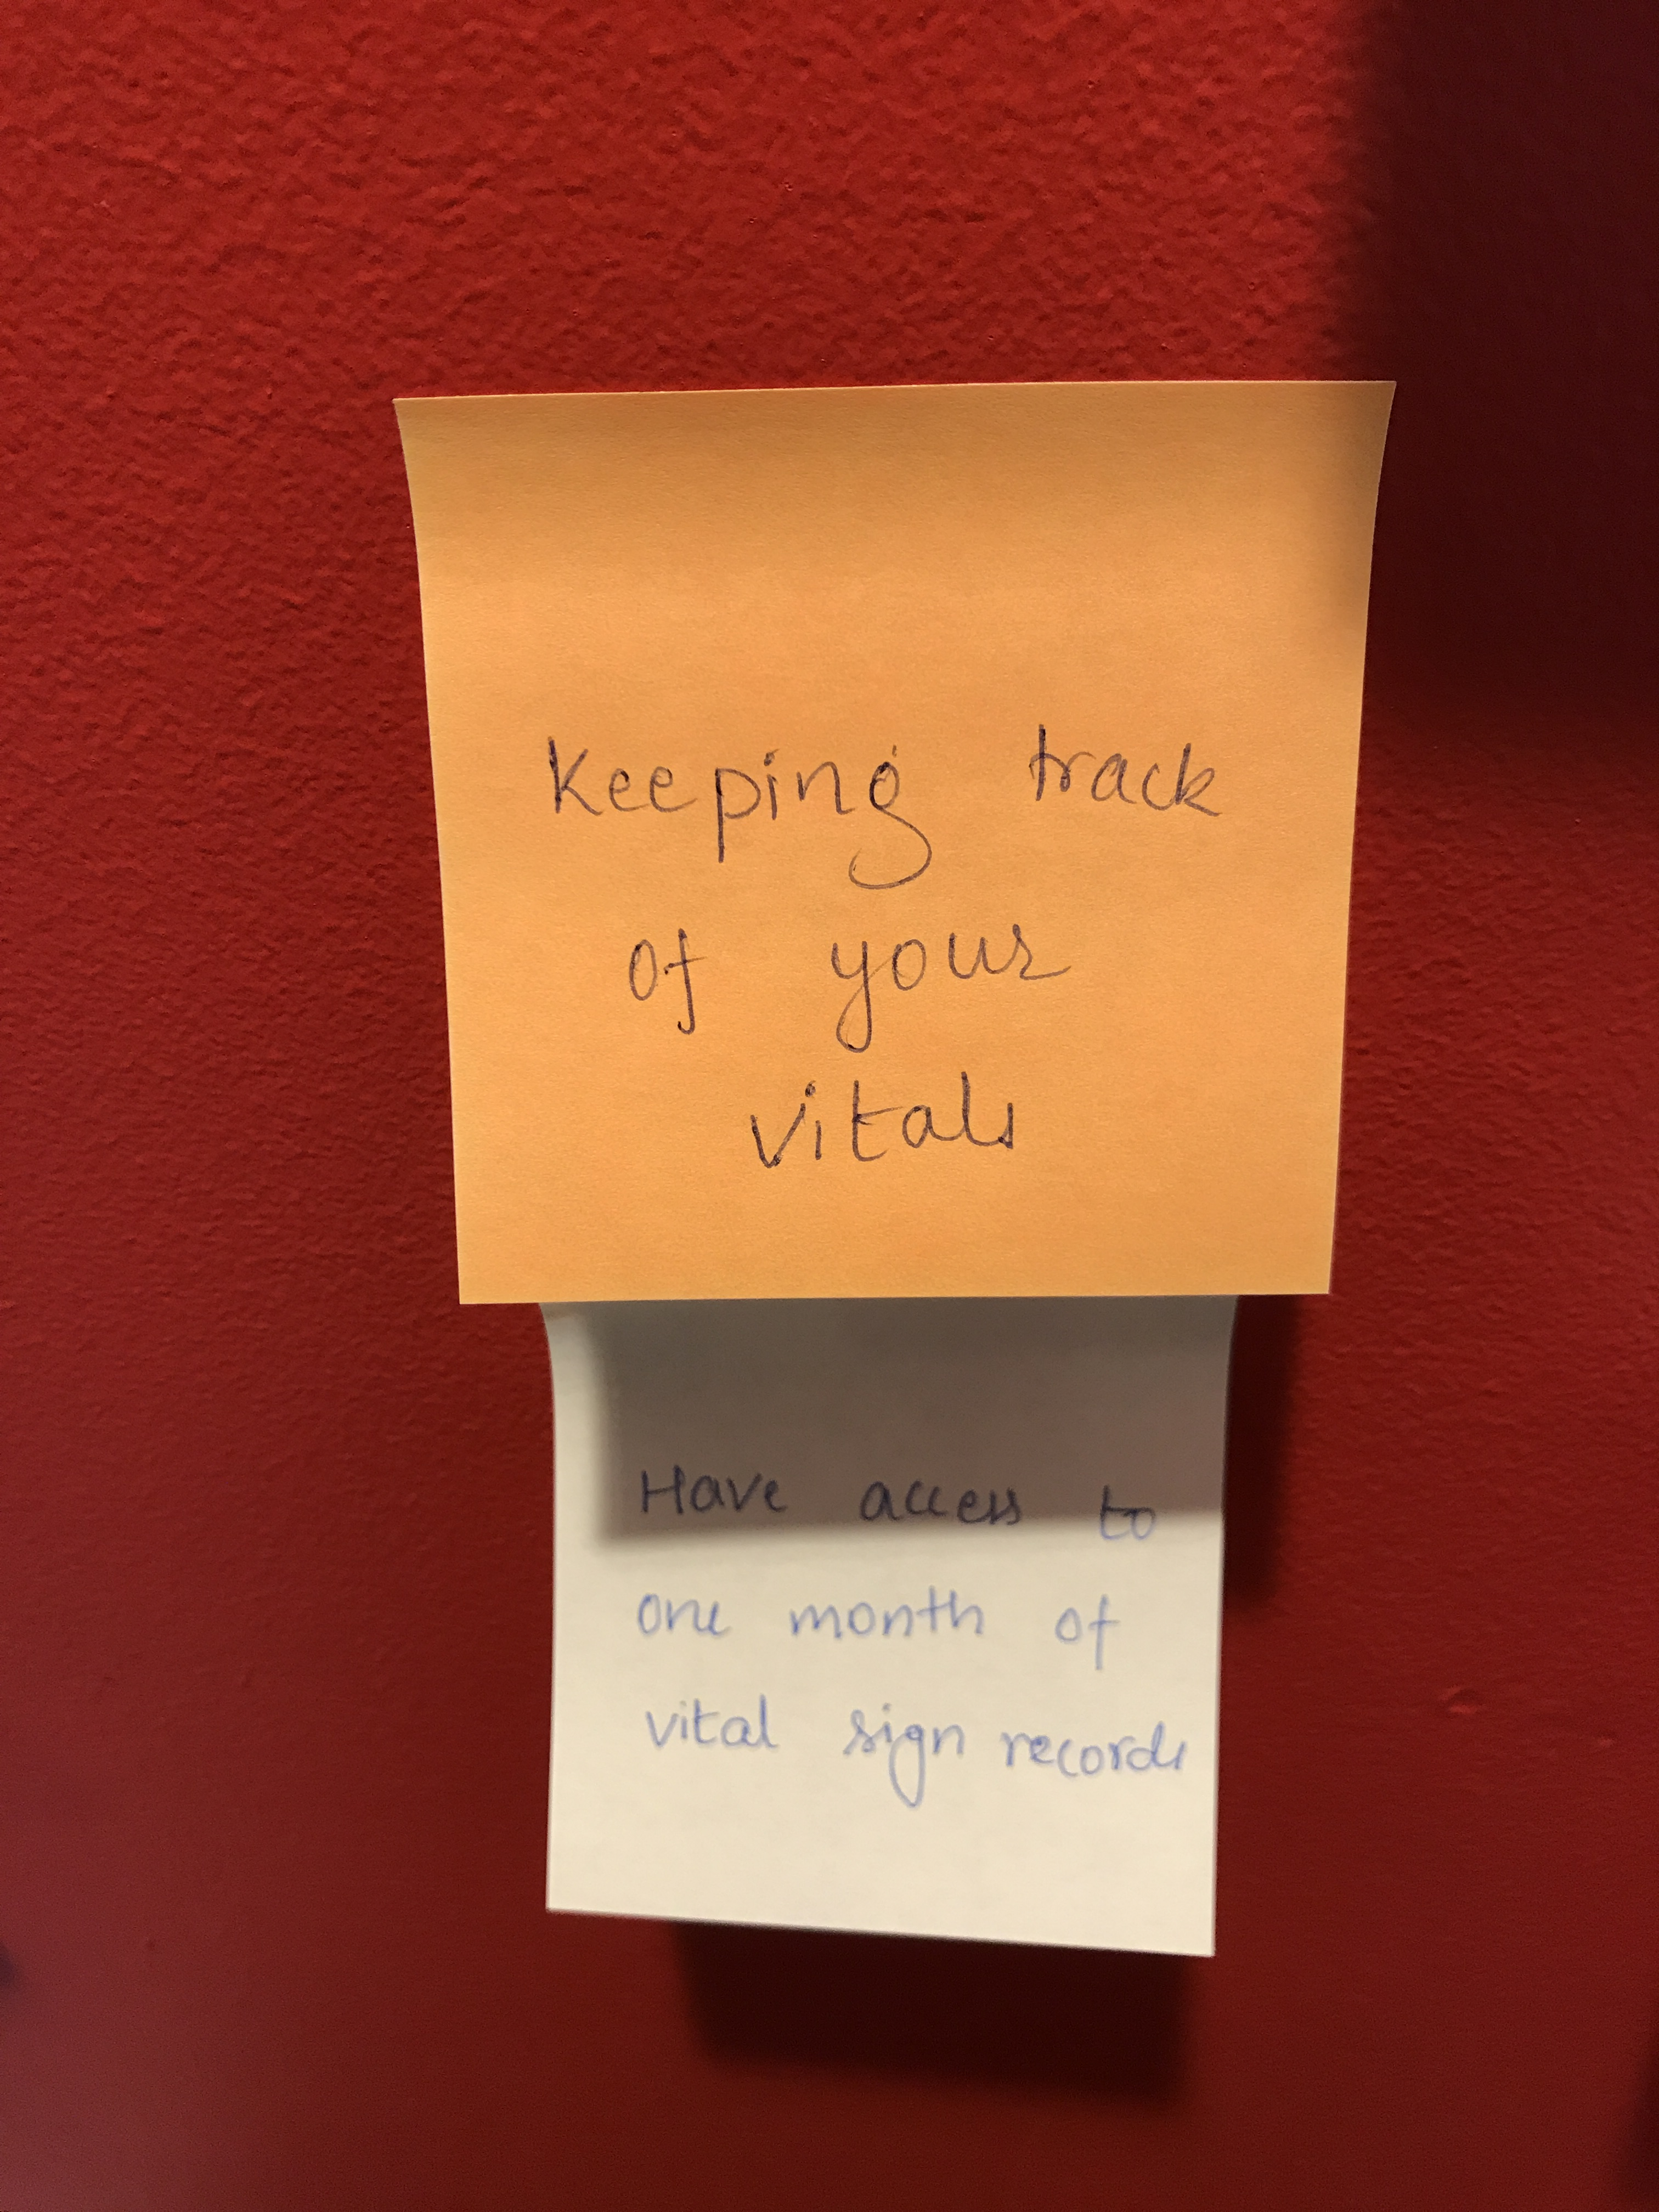 Keeping track
of your
vitals
Have access to
one month of
vital sign records